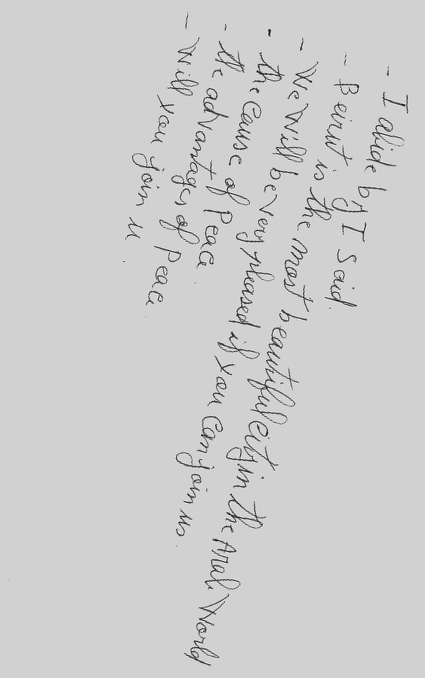 - I abide by I said.
- Beirut is the most beautiful city in the Arab World
- We will be very pleased if you can join us.
- the Cause of Peace
- the advantages of Peace
- Will you join u